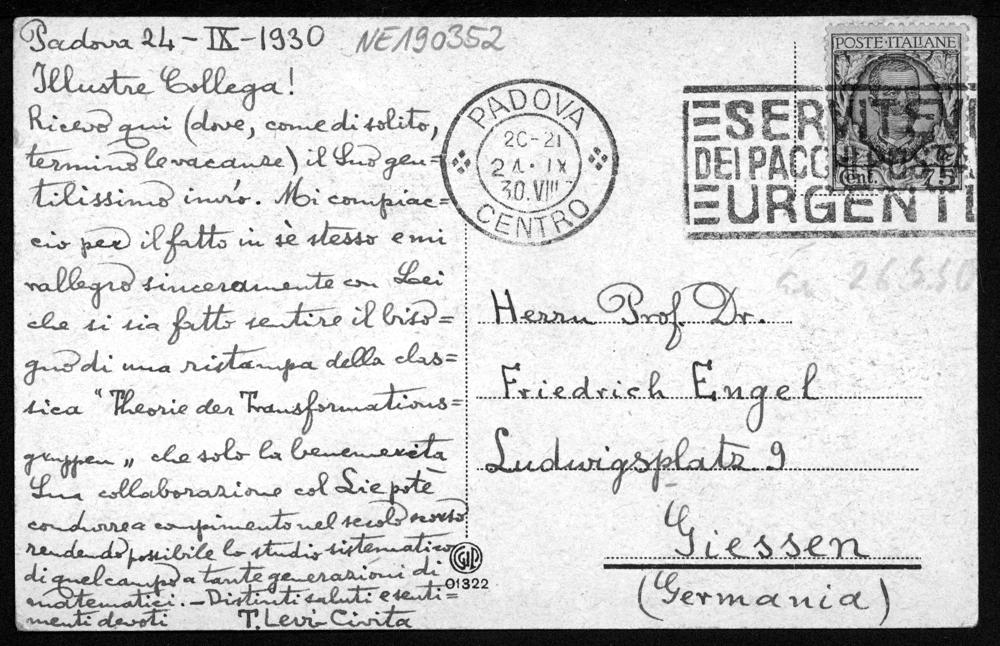 Padova 24-IX-1930
NE190352
Illustre Collega!
Ricevo qui (dove, come di solito,
termino le vacanze) il Suo gen=
tilissimo invio. Mi compiac=
cio per il fatto in sè stesso e mi
rallegro sinceramente con Lei
che si sia fatto sentire il biso=
gno di una ristampa della clas=
sica "Theorie der Transformations=
gruppen" che solo la benemerita
Sua collaborazione col Lie potè
condurre a compimento nel secolo scorso
rendendo possibile lo studio sistematico
di quel campo a tante generazioni di
matematici. - Distinti saluti e senti=
menti devoti T. Levi-Civita
PADOVA
20-21
24·IX
30.VIII
CENTRO
POSTE·ITALIANE
Cent. 75
SERVITEVI
DEI PACCHI
URGENTI
26.9.30
Herrn Prof. Dr.
Friedrich Engel
Ludwigsplatz 9
Giessen
(Germania)
01322